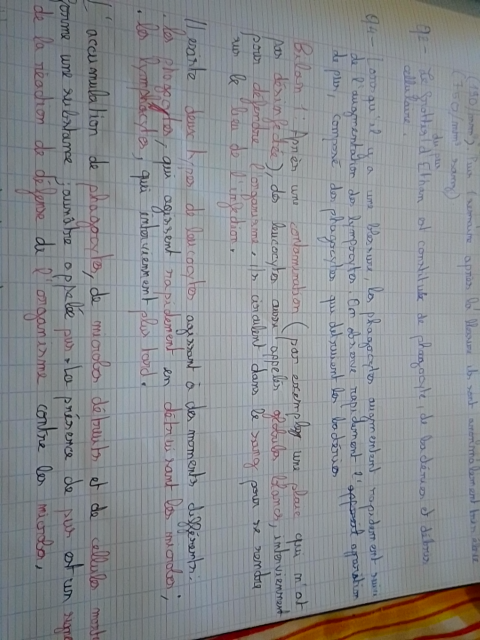 Pus (semaine après la blessure ils sont anormalement
(7500/mm3 sang)
du pus
Q2 Le frottis d'Ethan est constitué de phagocyte, de bactéries et débris
cellulaire.
Q4 - Lorsqu'il y a une blessure les phagocytes augmentent rapidement suivi
de l'augmentation des lymphocytes. On observe rapidement l'apparition
de pus, composé de phagocytes qui détruisent les bactéries
Bilan 1: Après une contamination (par exemple une plaie qui n'est
pas désinfectée), des leucocytes aussi appelés globules blancs, interviennent
pour défendre l'organisme. Ils circulent dans le sang pour se rendre
sur le lieu de l'infection.
Il existe deux types de leucocytes agissant à des moments différents:
. les phagocytes, qui agissent rapidement en détruisant les microbes,
. les lymphocytes, qui interviennent plus tard.
L'accumulation de phagocytes, de microbes détruits et de cellules mortes
forme une substance jaunâtre appelée pus. La présence de pus est un signe
de la réaction de défense de l'organisme contre les microbes,